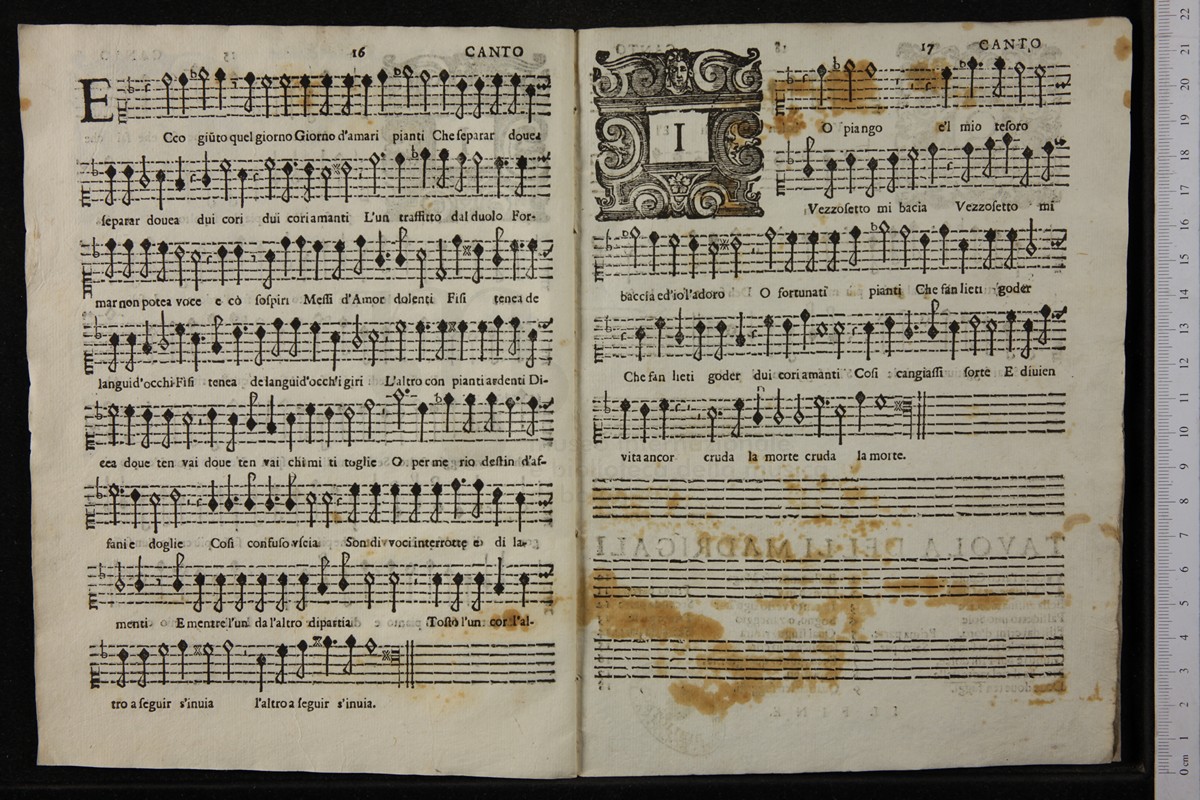 16 CANTO
E
Cco giũto quel giorno Giorno d'amari pianti Che separar douea
separar douea dui cori dui cori amanti L'un traffitto dal duolo For-
mar non potea voce e cõ sospiri Messi d'Amor dolenti Fisi tenea de
languid'occhi Fisi tenea de languid'occh'i giri L'altro con pianti ardenti Di-
cea doue ten vai doue ten vai chi mi ti toglie O per me rio destin d'af-
fani e doglie Cosi confuso vscia Son di voci interrotte e di la-
menti E mentre l'un da l'altro dipartia Tosto l'un cor l'al-
tro a seguir s'inuia l'altro a seguir s'inuia.
17 CANTO
I
O piango e'l mio tesoro
Vezzosetto mi bacia Vezzosetto mi
baccia ed'io l'adoro O fortunati pianti Che fan lieti goder
Che fan lieti goder dui cori amanti Cosi cangiassi sorte E diuien
vita ancor cruda la morte cruda la morte.
TAVOLA DELLI MADRIGALI
IL FINE
22
21
20
19
18
17
16
15
14
13
12
11
10
9
8
7
6
5
4
3
2
1
0 cm